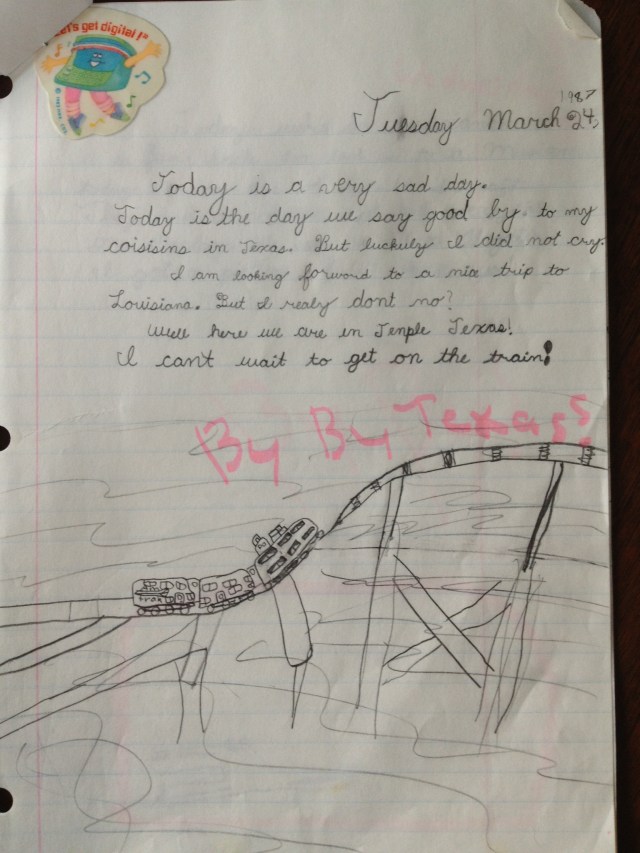 Let's get digital!"
1987
Tuesday March 24,
Today is a very sad day.
Today is the day we say good by to my
coisisins in Texas. But luckuly I did not cry.
I am looking forward to a nice trip to
Louisiana. But I realy dont no?
Well here we are in Temple Texas!
I can't wait to get on the train!
By By Texas!